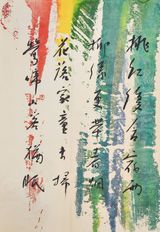 桃红复含宿雨
柳绿更带春烟
花落家童未扫
莺啼山客犹眠